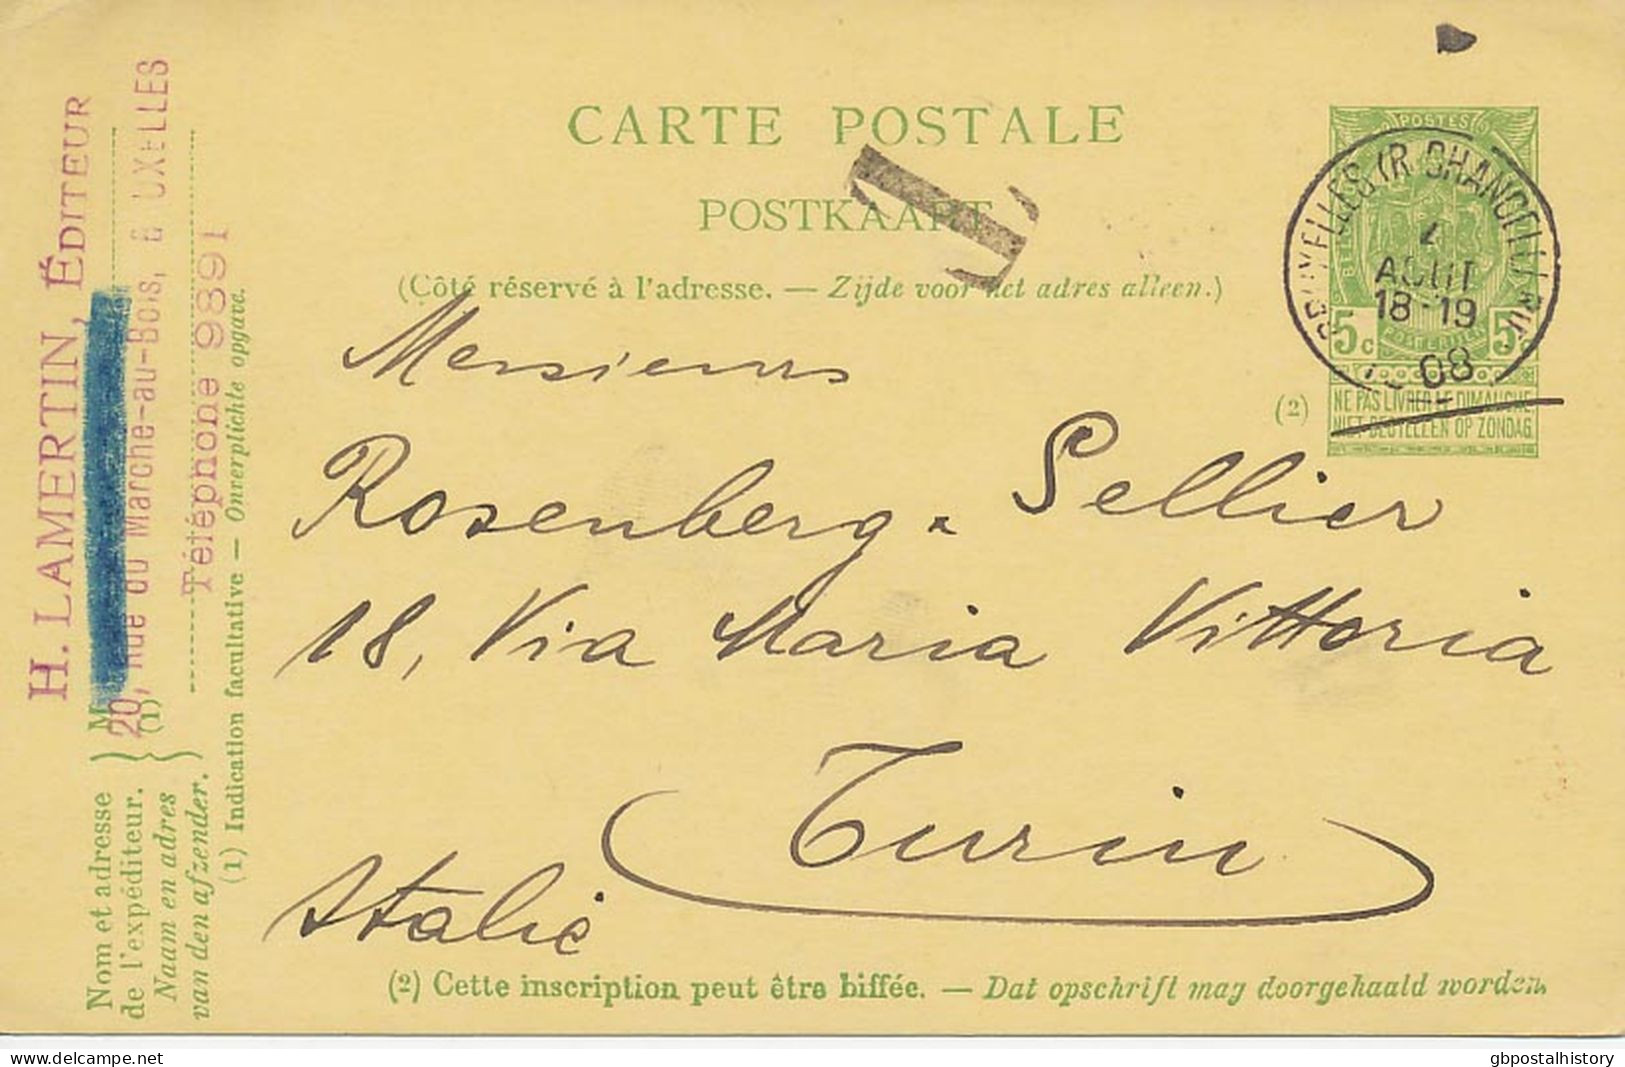 CARTE POSTALE
POSTKAART
(Côté réservé à l'adresse. — Zijde voor het adres alleen.)
T
POSTES
5c 5c
POSTERIJEN
NE PAS LIVRER LE DIMANCHE
NIET BESTELLEN OP ZONDAG
(2)
AOUT
18-19
08
Messieurs
Rosenberg & Sellier
18, Via Maria Vittoria
Turin
Italie
(2) Cette inscription peut être biffée. — Dat opschrift mag doorgehaald worden.
H. LAMERTIN, ÉDITEUR
20, Rue du Marché-au-Bois,
Téléphone 9891
M
(1)
Nom et adresse
de l'expéditeur.
Naam en adres
van den afzender.
(1) Indication facultative — Onverplichte opgave.
gbpostalhistory